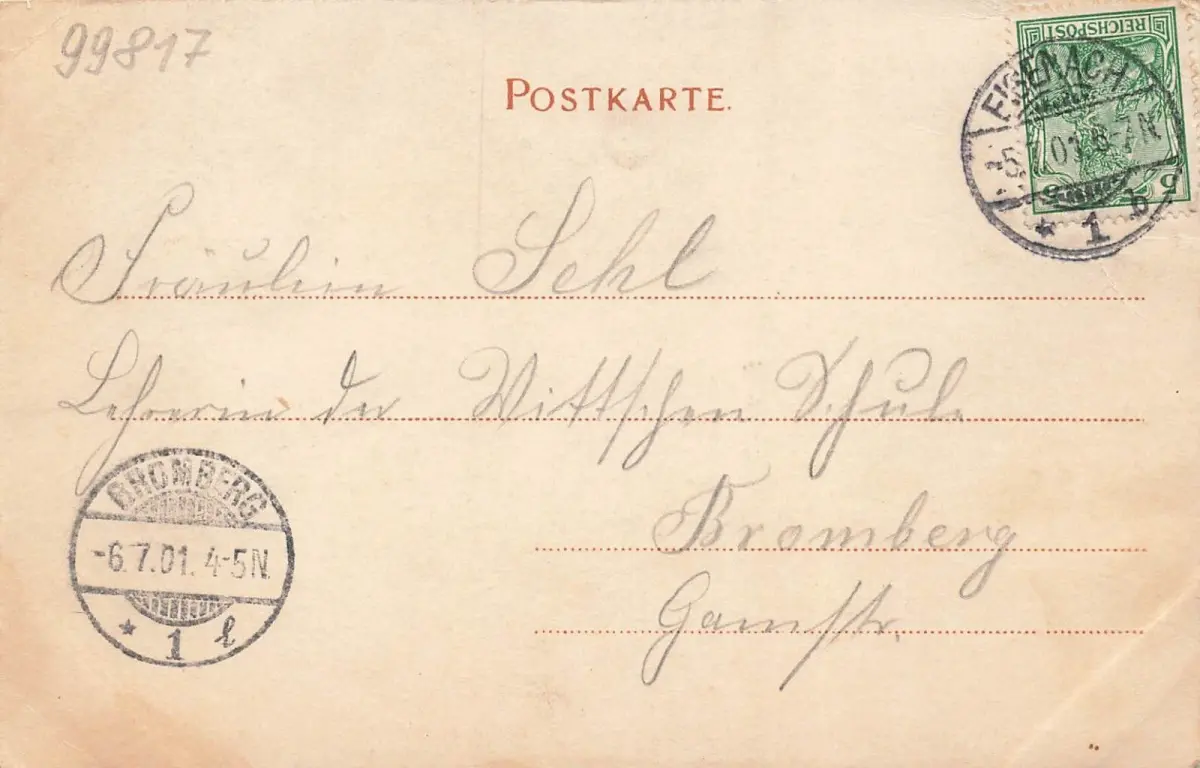 99817
POSTKARTE.
REICHSPOST
5
EISENACH
5.7.01.6-7N
* 1 b
Fräulein Sehl
Lehrerin der Wittschen Schule
Bromberg
Gamstr.
BROMBERG
-6.7.01. 4-5N.
* 1 l